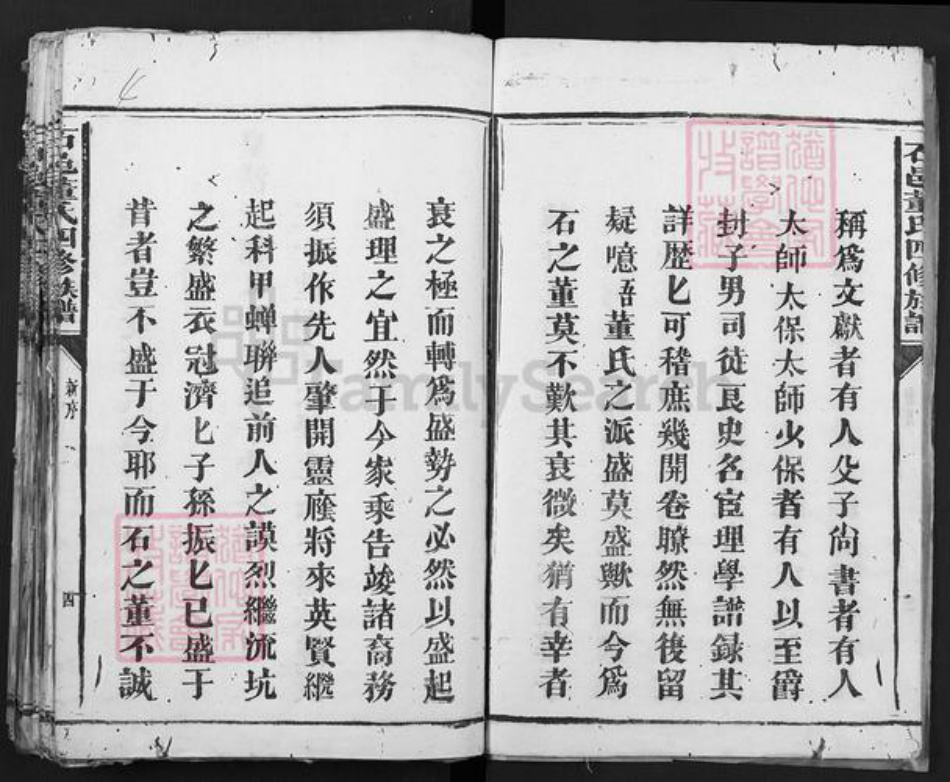 石邑董氏四修族譜
稱爲文獻者有人父子尚書者有人
太師太保太師少保者有人以至爵
封子男司徒良史名宦理學譜録其
詳歴匕可稽庶幾開卷瞭然無後留
疑噫吾董氏之派盛莫盛歟而今爲
石之董莫不歎其衰微矣猶有幸者
衰之極而轉爲盛勢之必然以盛起
盛理之宜然于今家乘告竣諸裔務
須振作先人肇開靈應將來英賢繼
起科甲蝉聯追前人之謨烈繼流坑
之繁盛衣冠濟匕子孫振匕已盛于
昔者豈不盛于今耶而石之董不誠
石邑董氏四修族譜
新序
四
FamilySearch